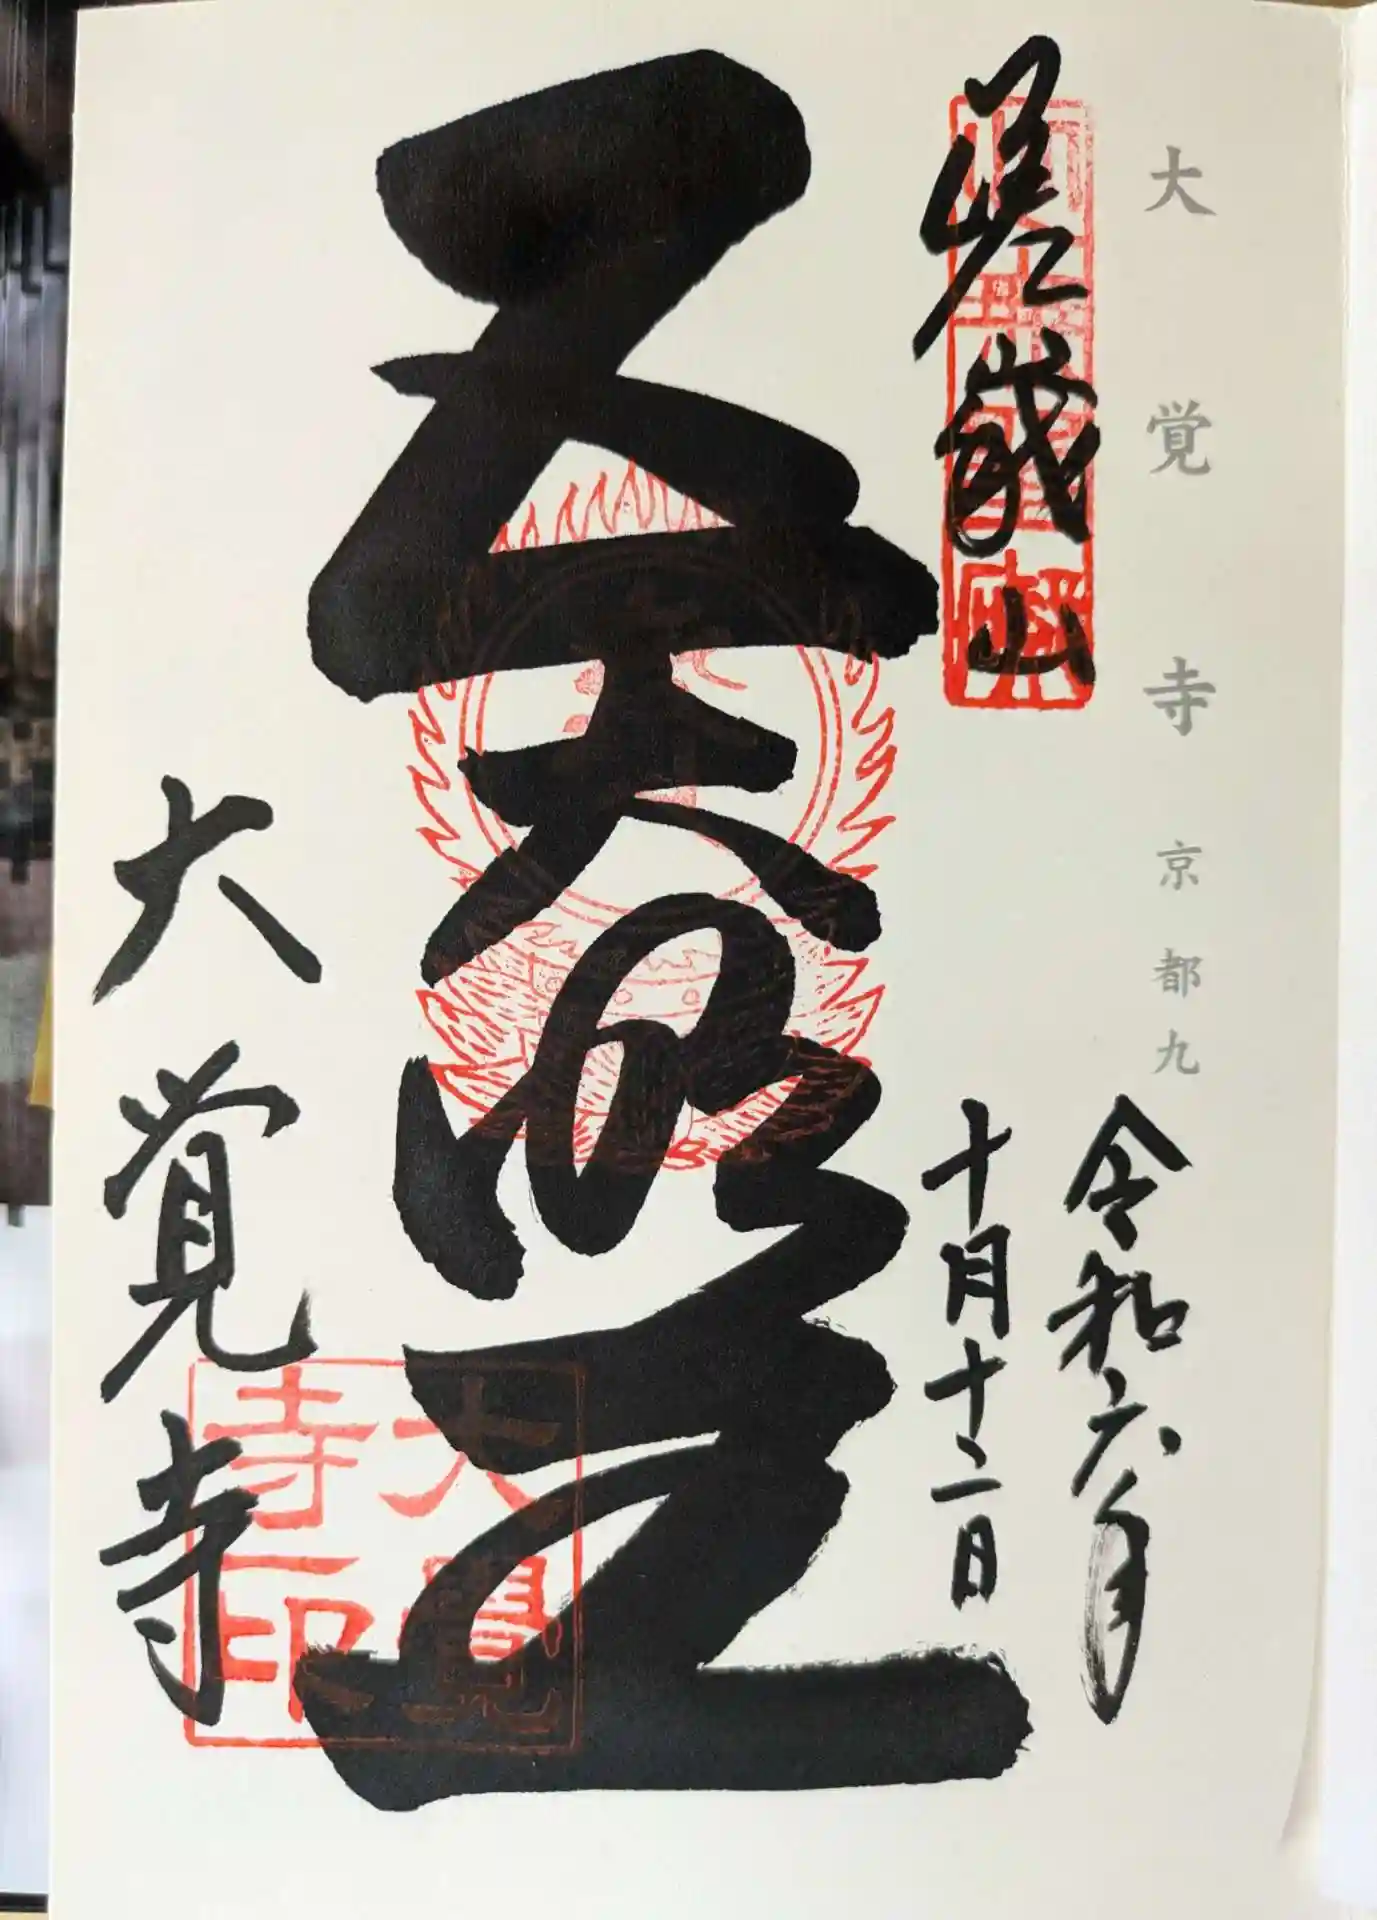 大覚寺 京都九
嵯峨山
令和六年
十月十二日
五大明王
大覚寺
大覺寺印